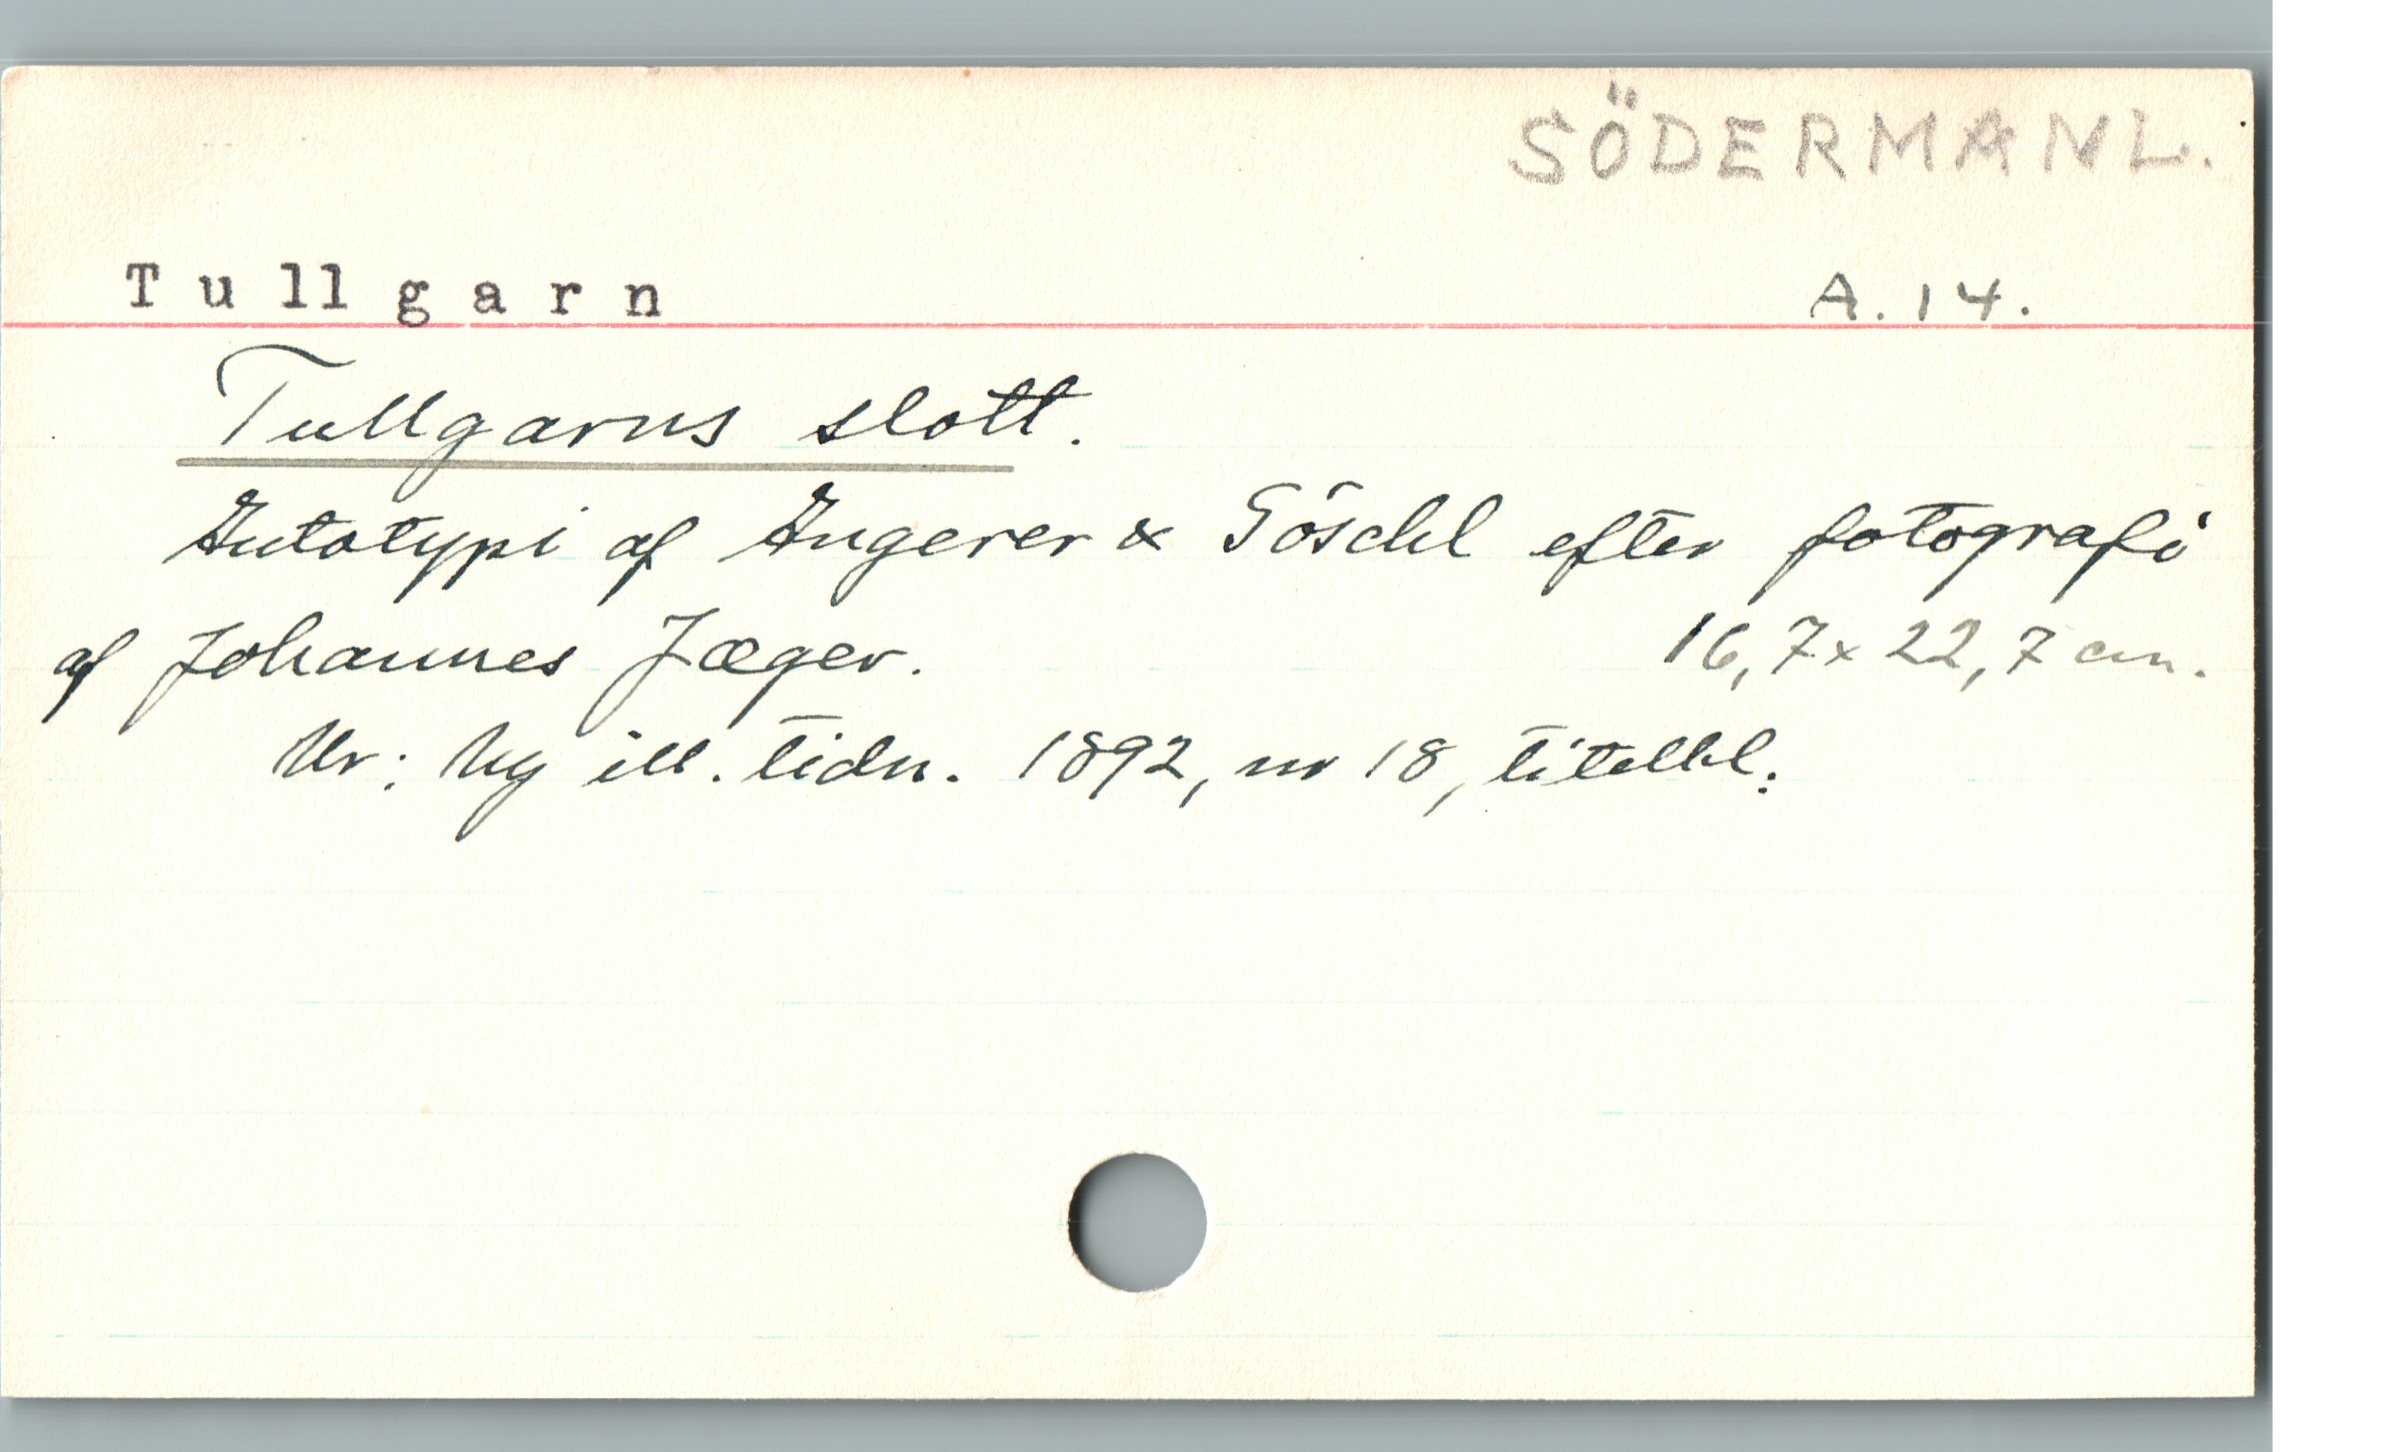 SÖDERMANL.
Tullgarn A. 14.
Tullgarns slott.
Autotypi af Angerer & Göschl efter fotografi
af Johannes Jæger. 16,7 x 22,7 cm.
Ur: Ny ill. tidn. 1892, nr 18, titelbl.